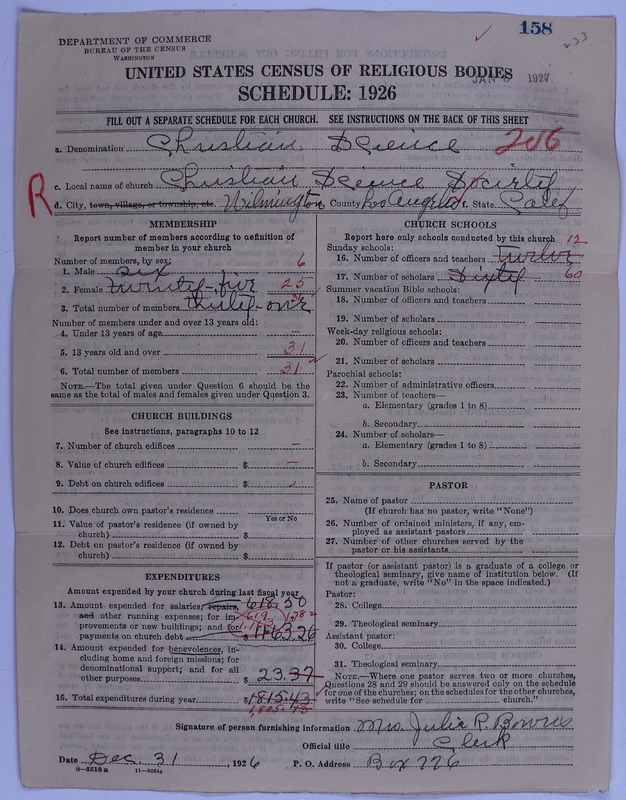 158
233
DEPARTMENT OF COMMERCE
BUREAU OF THE CENSUS
WASHINGTON
JAN 1927
UNITED STATES CENSUS OF RELIGIOUS BODIES
SCHEDULE: 1926
FILL OUT A SEPARATE SCHEDULE FOR EACH CHURCH. SEE INSTRUCTIONS ON THE BACK OF THIS SHEET
a. Denomination Christian Science 206
c. Local name of church Christian Science Society
R
d. City, town, village, or township, etc. Wilmington e. County Los Angeles f. State Calif
MEMBERSHIP
Report number of members according to definition of
member in your church
Number of members, by sex: 6
1. Male six
2. Female twenty-five 25
3. Total number of members thirty-one 31
Number of members under and over 13 years old:
4. Under 13 years of age –
5. 13 years old and over 31
6. Total number of members 31
NOTE.—The total given under Question 6 should be
same as the total of males and females given under Question 3.
CHURCH BUILDINGS
See instructions, paragraphs 10 to 12
7. Number of church edifices –
8. Value of church edifices $ –
9. Debt on church edifices $
10. Does church own pastor's residence
Yes or No
11. Value of pastor's residence (if owned by
church) $
12. Debt on pastor's residence (if owned by
church) $
EXPENDITURES
Amount expended by your church during last fiscal year
13. Amount expended for salaries, repairs, 618.50
and other running expenses; for im-
provements or new buildings; and for
payments on church debt $ 1163.26
14. Amount expended for benevolences, in-
cluding home and foreign missions; for
denominational support; and for all
other purposes $ 23.37
15. Total expenditures during year $ 1815.43
1,805.13
CHURCH SCHOOLS
Report here only schools conducted by this church 12
Sunday schools:
16. Number of officers and teachers twelve
17. Number of scholars Sixty 60
Summer vacation Bible schools:
18. Number of officers and teachers
19. Number of scholars
Week-day religious schools:
20. Number of officers and teachers
21. Number of scholars
Parochial schools:
22. Number of administrative officers
23. Number of teachers—
a. Elementary (grades 1 to 8)
b. Secondary
24. Number of scholars—
a. Elementary (grades 1 to 8)
b. Secondary
PASTOR
25. Name of pastor
(If church has no pastor, write "None")
26. Number of ordained ministers, if any, em-
ployed as assistant pastors
27. Number of other churches served by the
pastor or his assistants
If pastor (or assistant pastor) is a graduate of a college or
theological seminary, give name of institution below. (If
not a graduate, write "No" in the space indicated.)
Pastor:
28. College
29. Theological seminary
Assistant pastor:
30. College
31. Theological seminary
NOTE.—Where one pastor serves two or more churches,
Questions 28 and 29 should be answered only on the schedule
for one of the churches; on the schedules for the other churches,
write "See schedule for church."
Signature of person furnishing information Mrs. Julia R. Bowers
Official title Clerk
Date Dec. 31, 1926 P. O. Address Box 776
8—5518 a 11—9034a